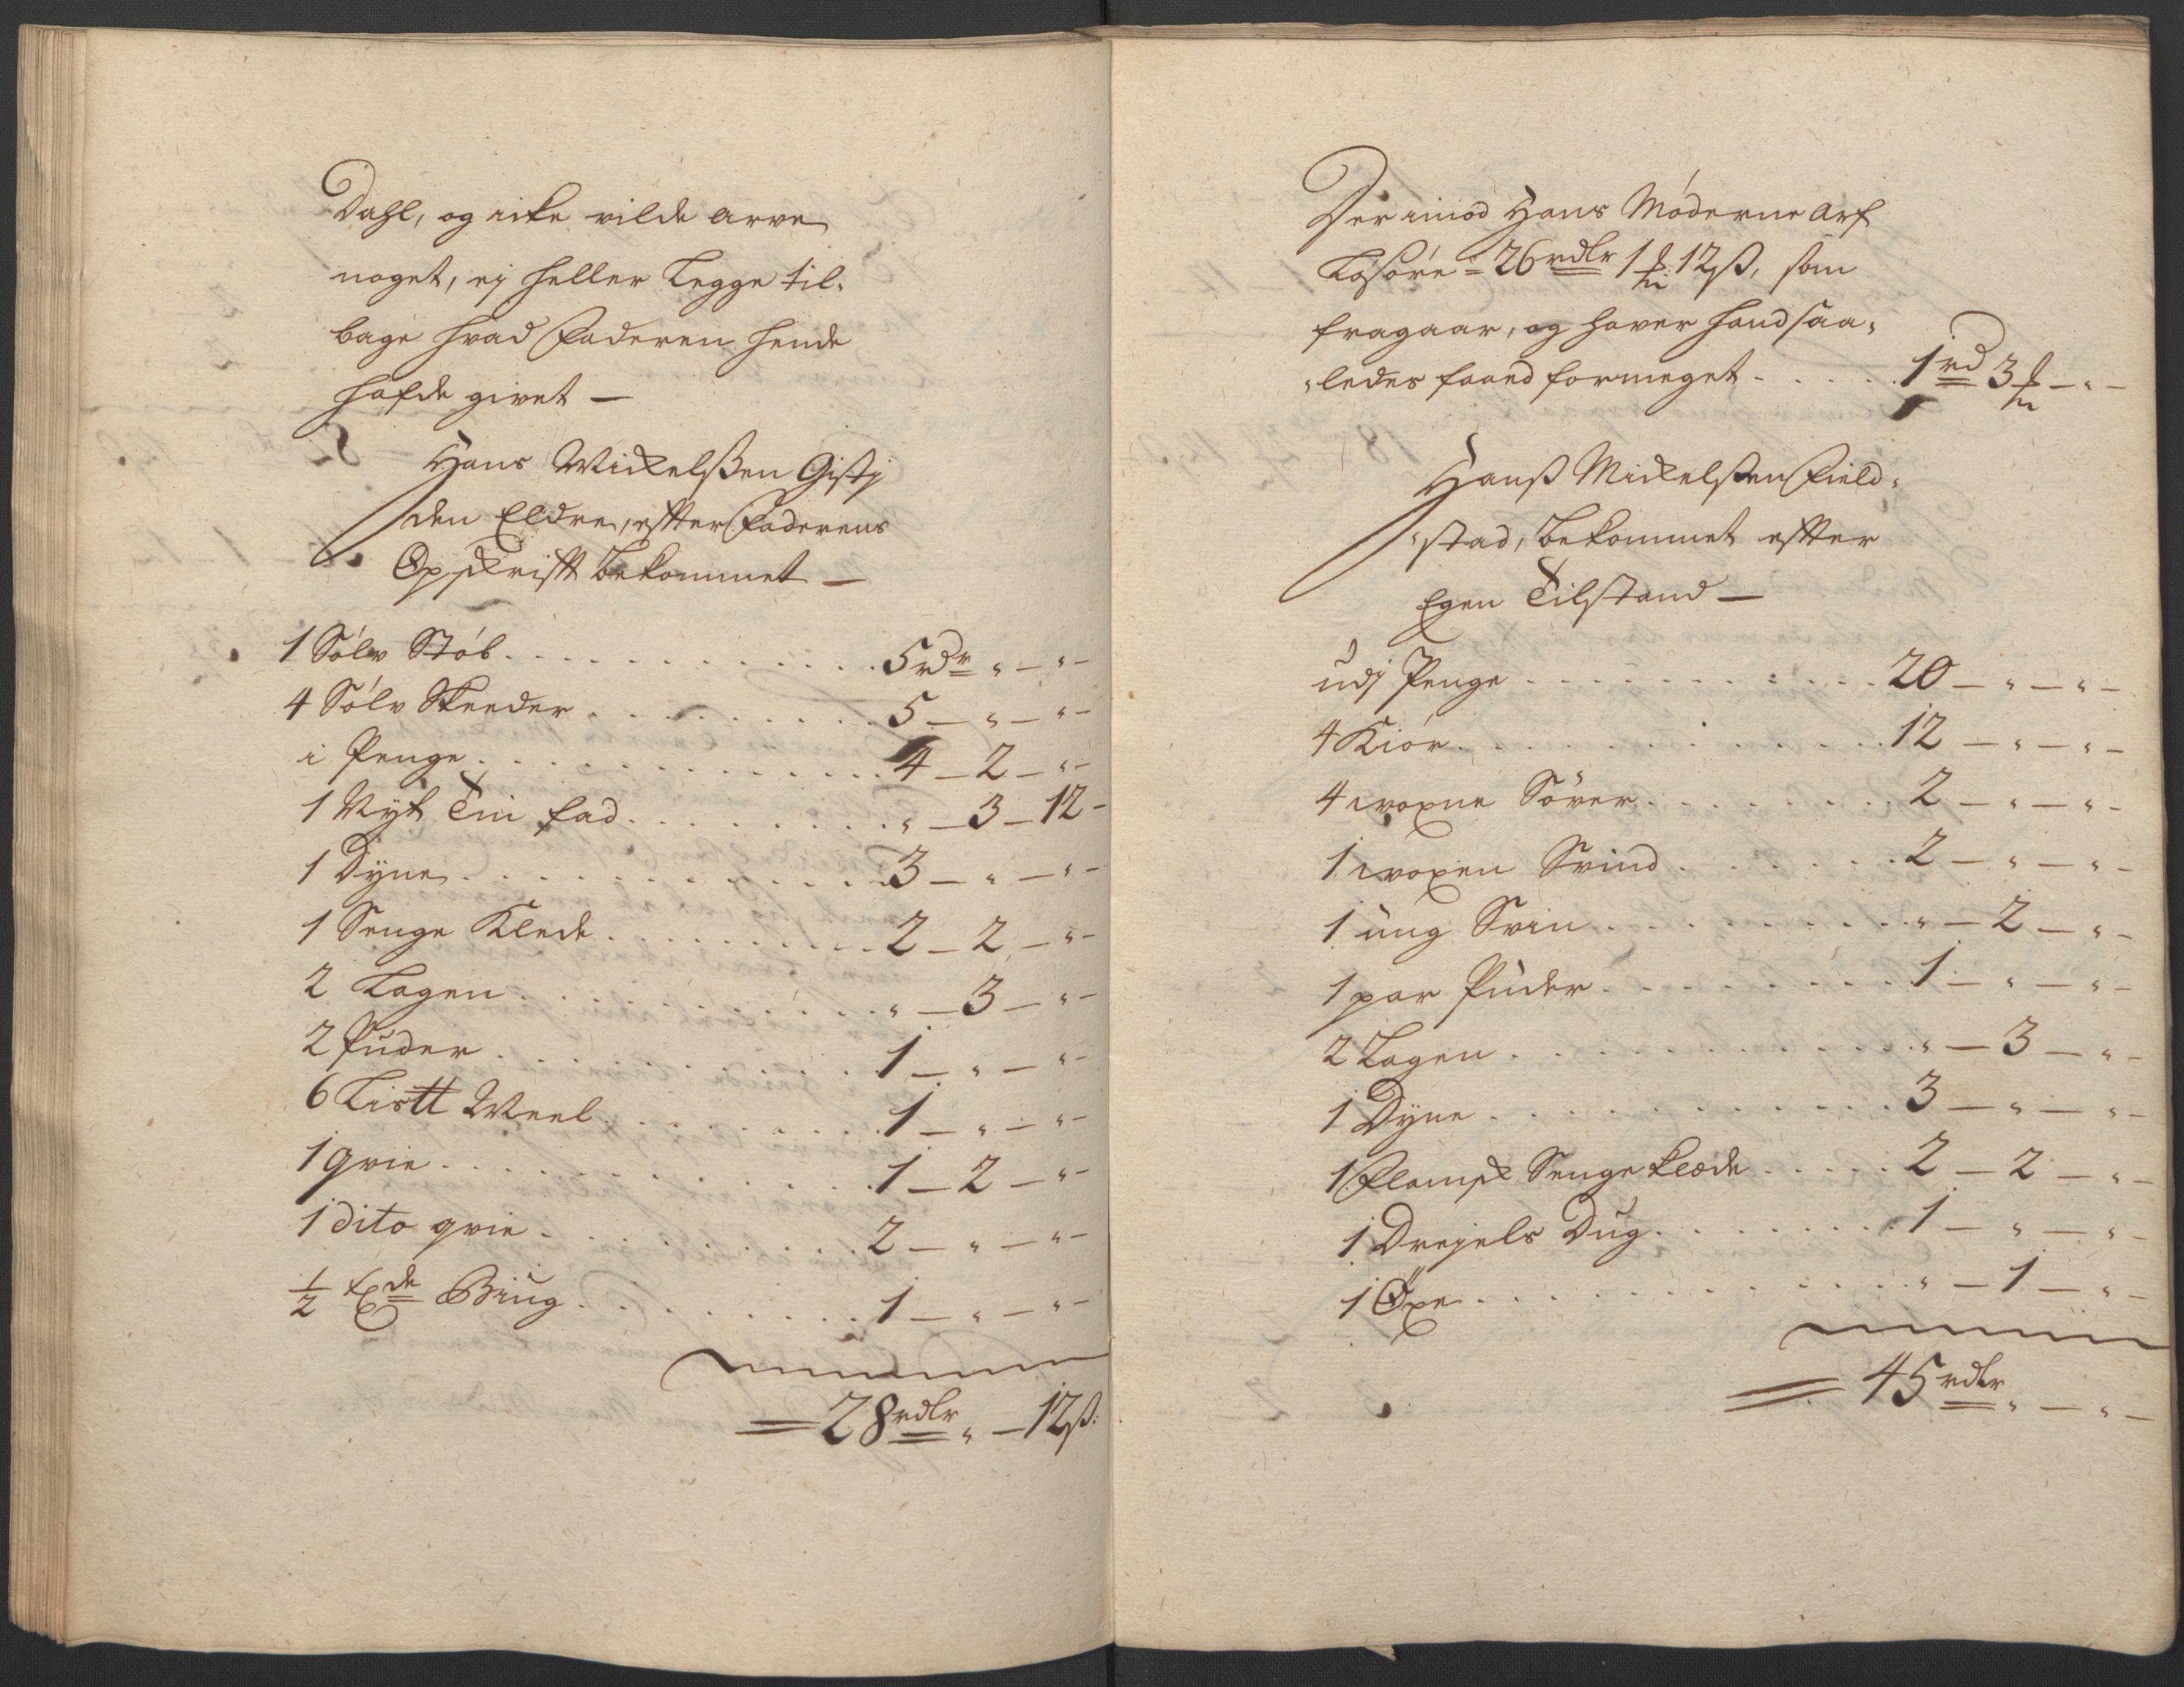 Dahl, og icke vilde arve
noget, ej heller Legge til-
bage hvad Faderen hende
hafde givet —
Hans Mickelßen Gistj
den Eldre, efter Faderens
Opskrifft bekommet —
1 Sølv Støb . . . . . . . . . . . . 5 rdr „ — „ —
4 Sølv Skeeder . . . . . . . . . 5 — „ — „ —
i Penge . . . . . . . . . . . . . 4 — 2 — „ —
1 Nyt Tin fad . . . . . . . . „ — 3 — 12 —
1 Dyne . . . . . . . . . . . . 3 — „ — „ —
1 Senge Klede . . . . . . . . . 2 — 2 — „ —
2 Lagen . . . . . . . . . . . „ — 3 — „ —
2 Puder . . . . . . . . . . . 1 — „ — „ —
6 Listt Meel . . . . . . . . 1 — „ — „ —
1 qvie . . . . . . . . . . . . 1 — 2 — „ —
1 dito qvie . . . . . . . . . 2 — „ — „ —
½ Biug . . . . . . . . 1 — „ — „ —
= 28 rdlr „ — 12 ß:
Der imod Hans Møderne Arf
Løsøre = 26 rdlr 1 12 ß, som
fragaar, og haver hand saa-
-ledes faaed formeget . . . . . 1 rd 3 — „ —
Hanß Mickelßen Field-
-stad, bekommet efter
Egen Tilstand —
udj Penge . . . . . . . . . . . 20 — „ — „ —
4 Kiør . . . . . . . . . . . 12 — „ — „ —
4 voxne Sover . . . . . . . . 2 — „ — „ —
1 voxen Svind . . . . . . . 2 — „ — „ —
1 ung Svin . . . . . . . . . . „ — 2 — „ —
1 par Puder . . . . . . . . . 1 — „ — „ —
2 Lagen . . . . . . . . . . . „ — 3 — „ —
1 Dyne . . . . . . . . . . . . 3 — „ — „ —
1 Flamsk Senge klæde . . . . . 2 — 2 — „ —
1 Drejels Dug . . . . . . . . 1 — „ — „ —
1 Øxe . . . . . . . . . . . . „ — 1 — „ —
= 45 rdlr „ — „ —